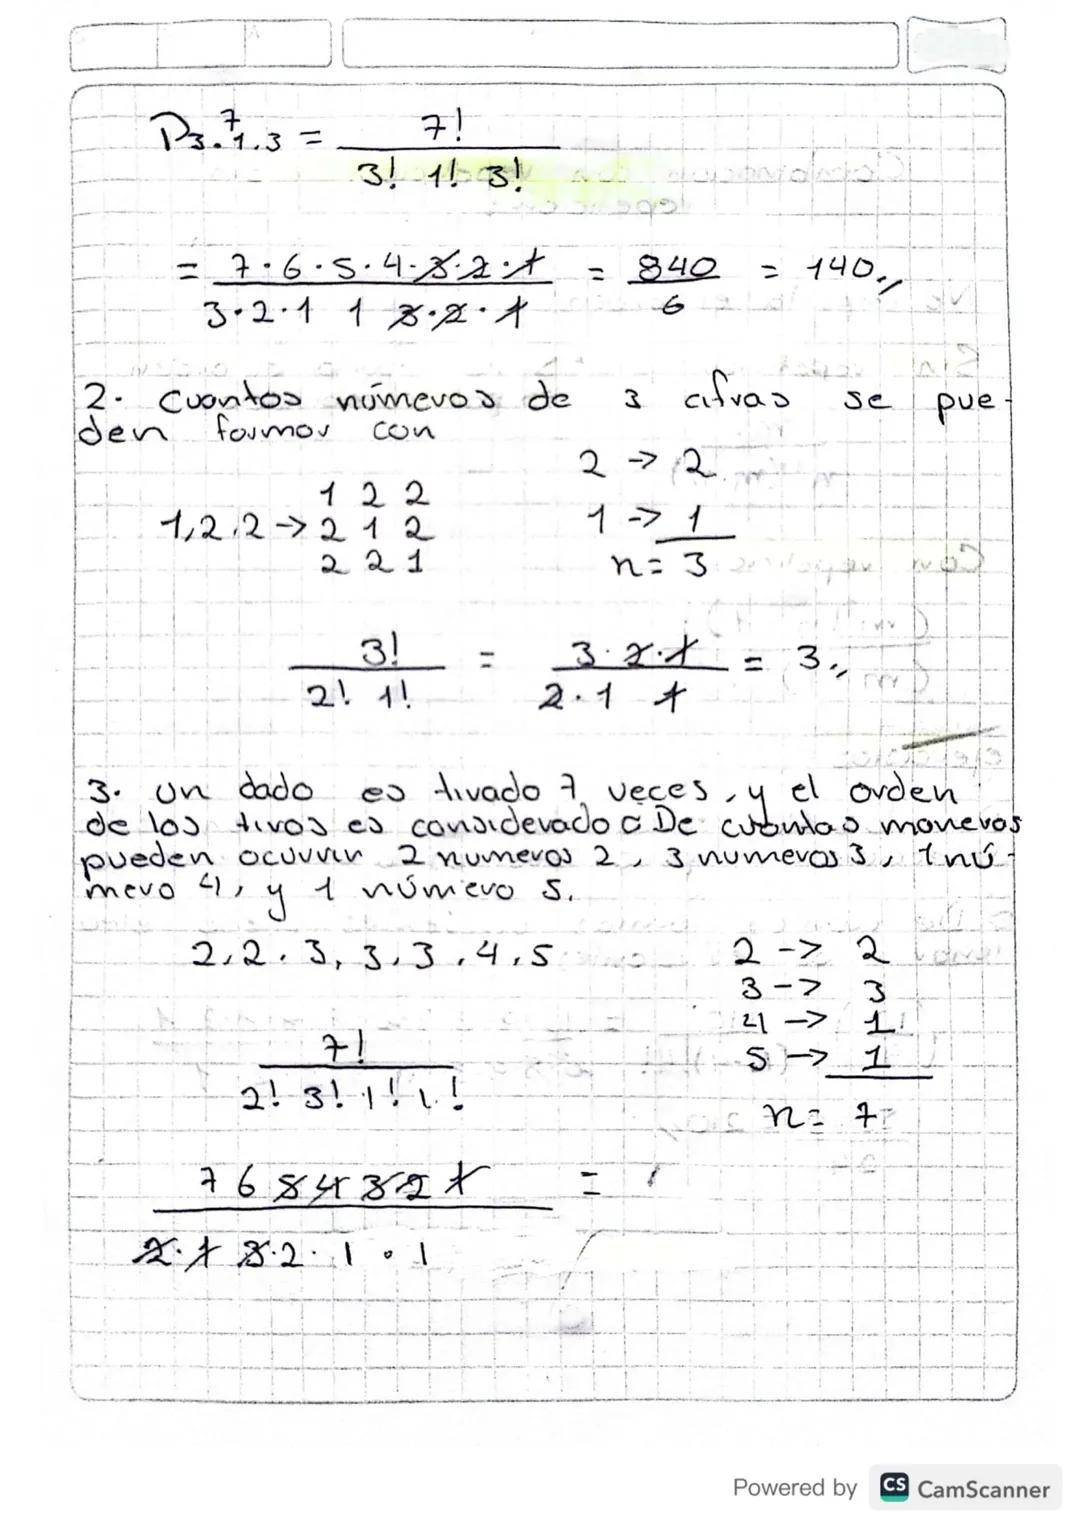 P₃.₁.₃⁷ = 7! / 3! 1! 3!
= 7·6·5·4·3·2·1 / 3·2·1 1 3·2·1 = 840 / 6 = 140,,
2. cuantos números de 3 cifras se pue-
den formar con
2 -> 2
1 2 2
1,2,2 -> 2 1 2
1 -> 1
2 2 1
n= 3
3! / 2! 1! = 3·2·1 / 2·1 1 = 3,,
3. un dado es tirado 7 veces, y el orden
de los tiros es considerado De cuantas maneras
pueden ocurrir 2 numeros 2, 3 numeros 3, 1 nú-
mero 4, y 1 número 5.
2,2,3,3,3,4,5
2 -> 2
3 -> 3
4 -> 1
5 -> 1
n= 7
7! / 2! 3! 1! 1!
7 6 5 4 3 2 1 / 2·1 3·2·1·1 =
Powered by CS CamScanner